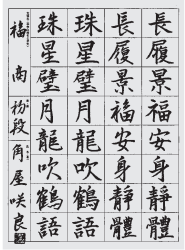 長履景福安身靜體
長履景福安身靜體
珠星璧月龍吹鶴語
珠星璧月龍吹鶴語
福尚初段角屋咲良